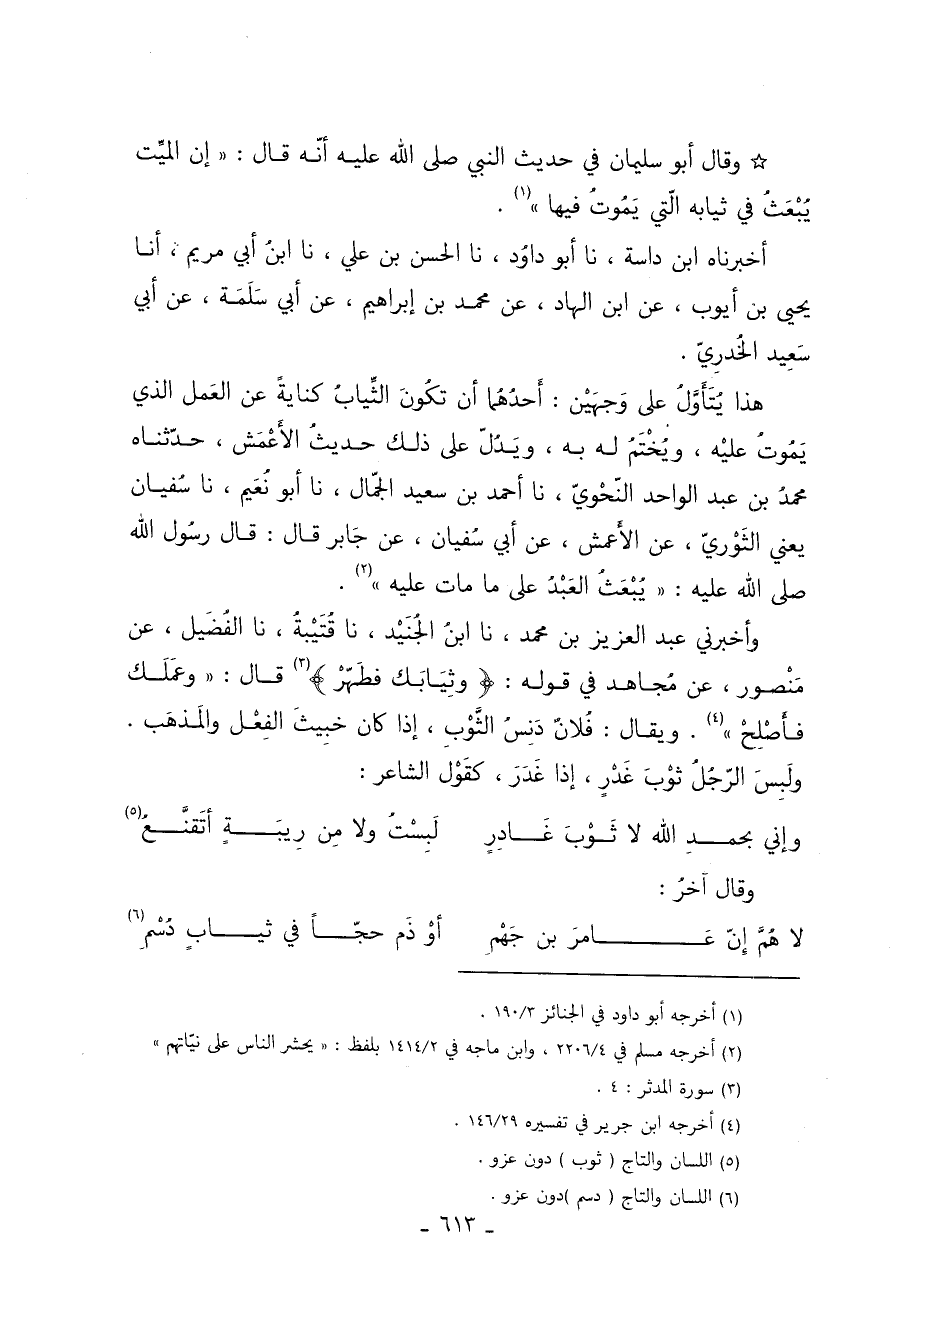 ☆ وقال أبو سليمان في حديث النبي صلى الله عليه أنّه قال : « إن الميِّت
يُبْعَثُ في ثيابه الّتي يَمُوتُ فيها »(١) .
أخبرناه ابن داسة ، نا أبو داوُد ، نا الحسن بن علي ، نا ابنُ أبي مريم ، أنا
يحيى بن أيوب ، عن ابن الهاد ، عن محمد بن إبراهيم ، عن أبي سَلَمَة ، عن أبي
سَعِيد الخُدريّ .
هذا يُتَأَوَّلُ على وَجهَيْن : أَحدُهُما أن تكُونَ الثِّيابُ كنايةً عن العَمل الذي
يَمُوتُ عليْه ، ويُخْتَمُ له به ، ويَدُلّ على ذلك حديثُ الأَعْمَش ، حدّثناه
محمدُ بن عبد الواحد النَّحْويّ ، نا أحمد بن سعيد الجمّال ، نا أبو نُعَيم ، نا سُفيان
يعني الثَوْريّ ، عن الأَعمش ، عن أبي سُفيان ، عن جَابر قال : قال رسُول الله
صلى الله عليه : « يُبْعَثُ العَبْدُ على ما مات عليه »(٢) .
وأخبرني عبد العزيز بن محمد ، نا ابنُ الجُنَيْد ، نا قُتَيْبةُ ، نا الفُضَيل ، عن
مَنْصور ، عن مُجاهد في قوله : ﴿ وثِيَابَك فطَهِّرْ ﴾(٣) قال : « وعَمَلَك
فأَصْلِحْ »(٤) . ويقال : فُلانٌ دَنِسُ الثَّوْب ، إذا كان خبيثَ الفِعْل والمَذهَب .
ولَبِسَ الرّجُلُ ثوْبَ غَدْرٍ ، إذا غَدَرَ ، كقَوْل الشاعر :
وإني بحمد الله لا ثَوْبَ غَادِرٍ لَبِسْتُ ولا مِن رِيبَةٍ أَتَقنَّعُ(٥)
وقال آخرُ :
لا هُمَّ إنّ عَامرَ بن جَهْمِ أوْ ذَم حجّاً في ثيابٍ دُسْمِ(٦)
(١) أخرجه أبو داود في الجنائز ١٩٠/٣ .
(٢) أخرجه مسلم في ٢٢٠٦/٤ ، وابن ماجه في ١٤١٤/٢ بلفظ : « يحشر الناس على نيّاتهم »
(٣) سورة المدثر : ٤ .
(٤) أخرجه ابن جرير في تفسيره ١٤٦/٢٩ .
(٥) اللسان والتاج ( ثوب ) دون عزو .
(٦) اللسان والتاج ( دسم )دون عزو .
ـ ٦١٣ ـ